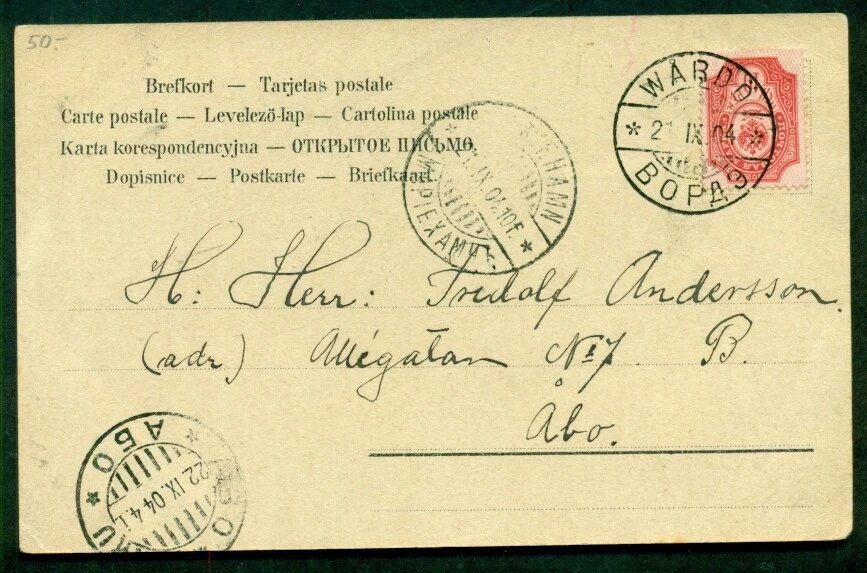 50.-
Brefkort — Tarjetas postale
Carte postale — Levelező-lap — Cartolina postale
Karta korespondencyjna — ОТКРЫТОЕ ПИСЬМО.
Dopisnice — Postkarte — Briefkaart
WÅRDÖ
* 21 IX.04 *
ВОРДЭ
EHAMN
21.IX.04.10F.
МАРІЕХАМНЪ
H: Herr: Fridolf Andersson.
(adr) Allégatan No 7 B.
Åbo.
АБО
22.IX.04 4.